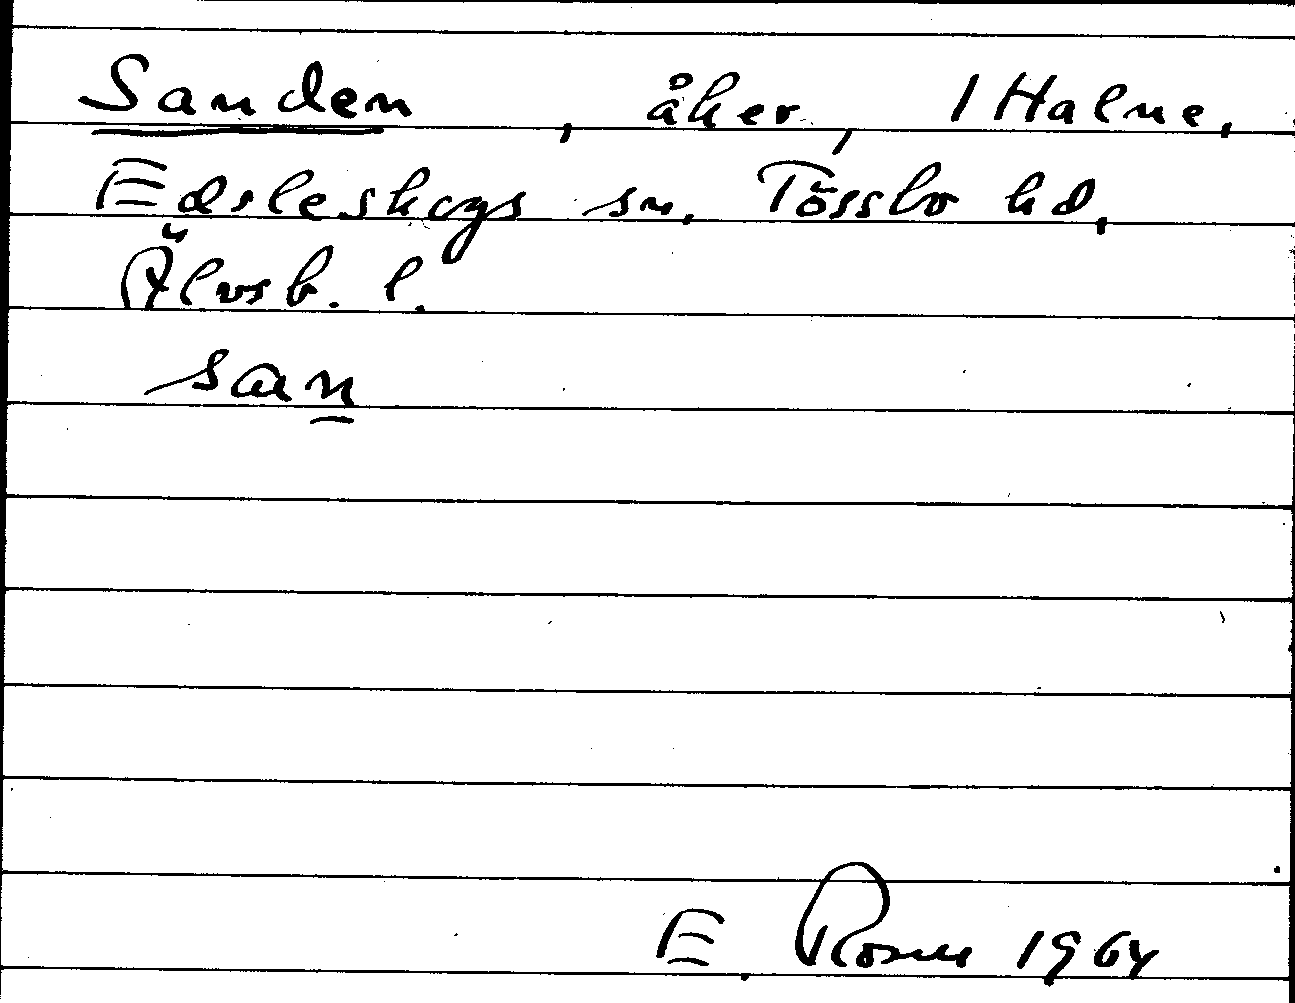 Sanden, åker, 1 Halne,
Edsleskogs sn. Tössbo hd,
Älvsb. l.
san
E. Rosne 1964